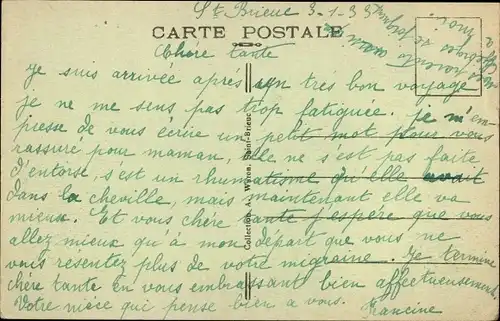 St Brieuc 3-1-33
CARTE POSTALE
Chère tante
Je suis arrivée après un très bon voyage
je ne me sens pas trop fatiguée. je m'em-
presse de vous écrire un petit mot pour vous
rassuré pour maman, elle ne s'est pas faite
d'entorse, s'est un rhumatisme qu'elle avait
dans la cheville, mais maintenant elle va
mieux. Et vous chère tante j'espère que vous
allez mieux qu'à mon départ que vous ne
vous resentez plus de votre migraine. Je termine
chère tante en vous embrassant bien affectueusement
Votre nièce qui pense bien a vous. Francine
Collection A. Waron, Saint-Brieuc